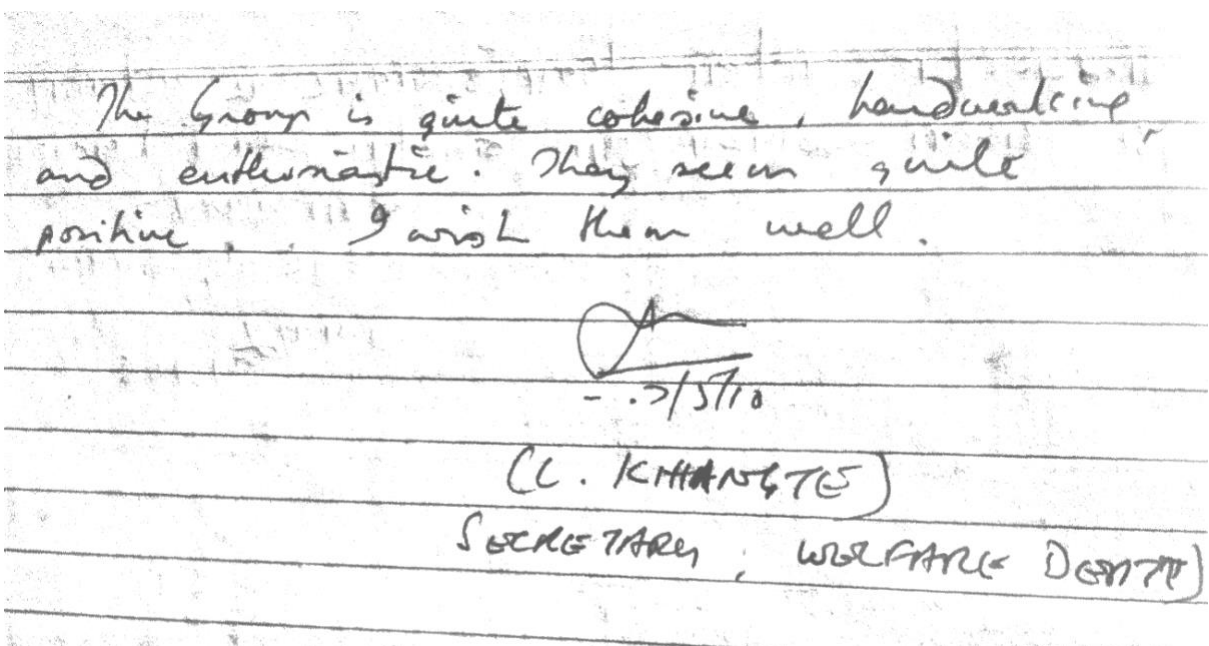 The Group is quite cohesive, hardworking
and enthusiastic. They seem quite
positive. I wish them well.
/5/10
(L. KHIANGTE)
SECRETARY, WELFARE DEPTT)